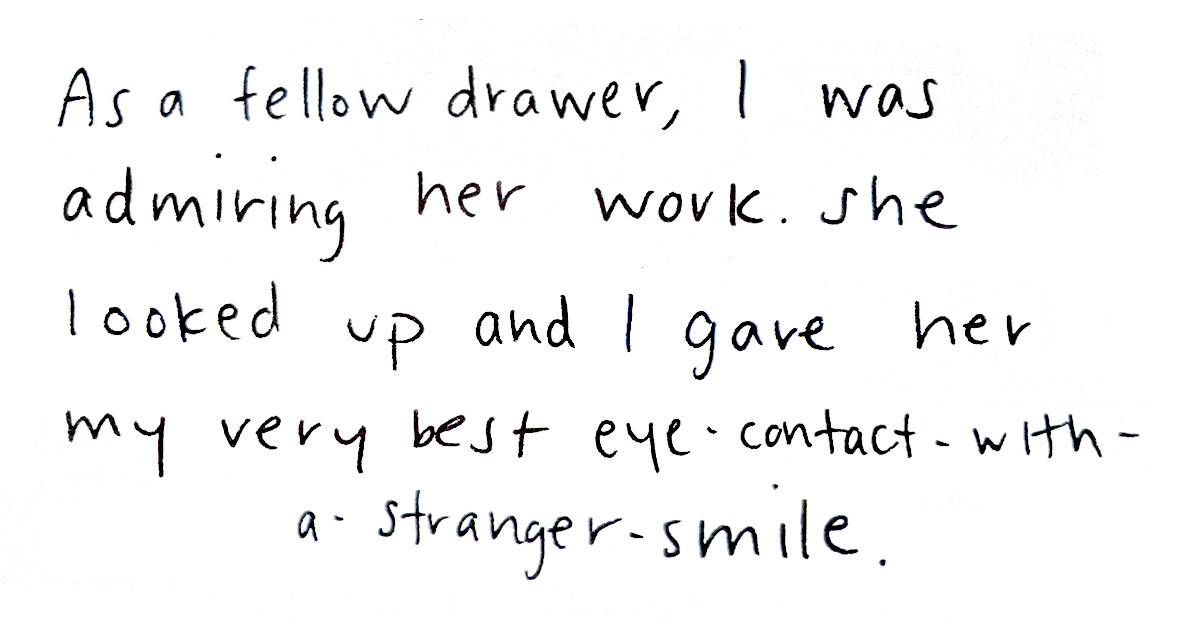 As a fellow drawer, I was
admiring her work. she
looked up and I gave her
my very best eye-contact-with-
a-stranger-smile.